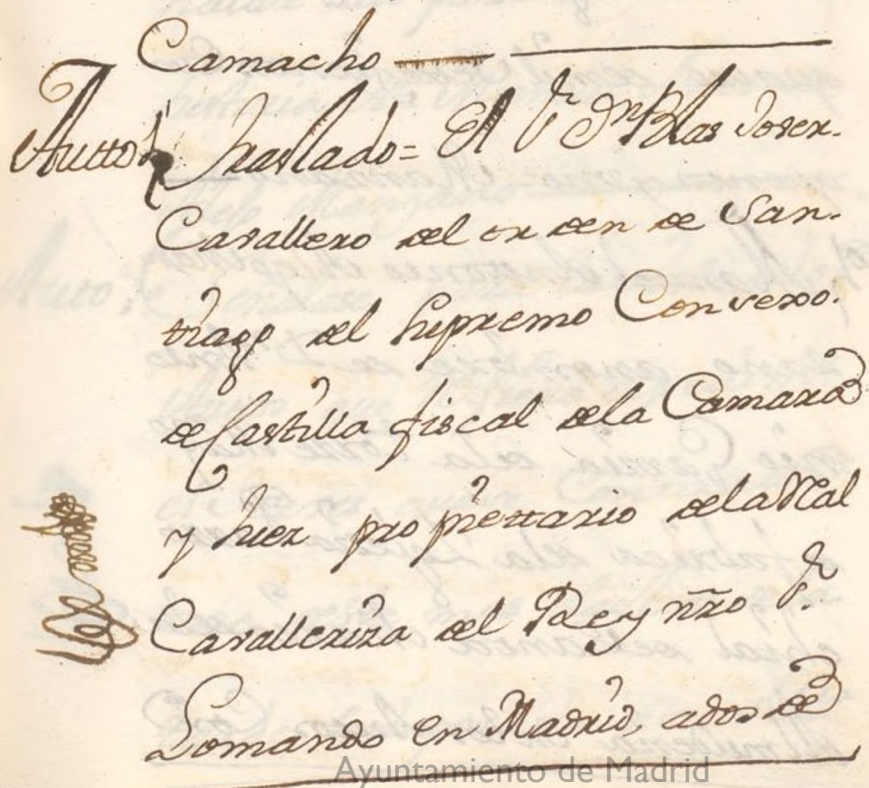 Camacho
Autto} traslado = El Sr. Dn Blas Jover.
Cavallero del orden de San-
tiago del Supremo Consexo.
de Castilla fiscal de la Camara
y Juez proprietario de la Real
Cavalleriza del Rey nro Sr.
Lo mando en Madrid, a dos de
Ayuntamiento de Madrid